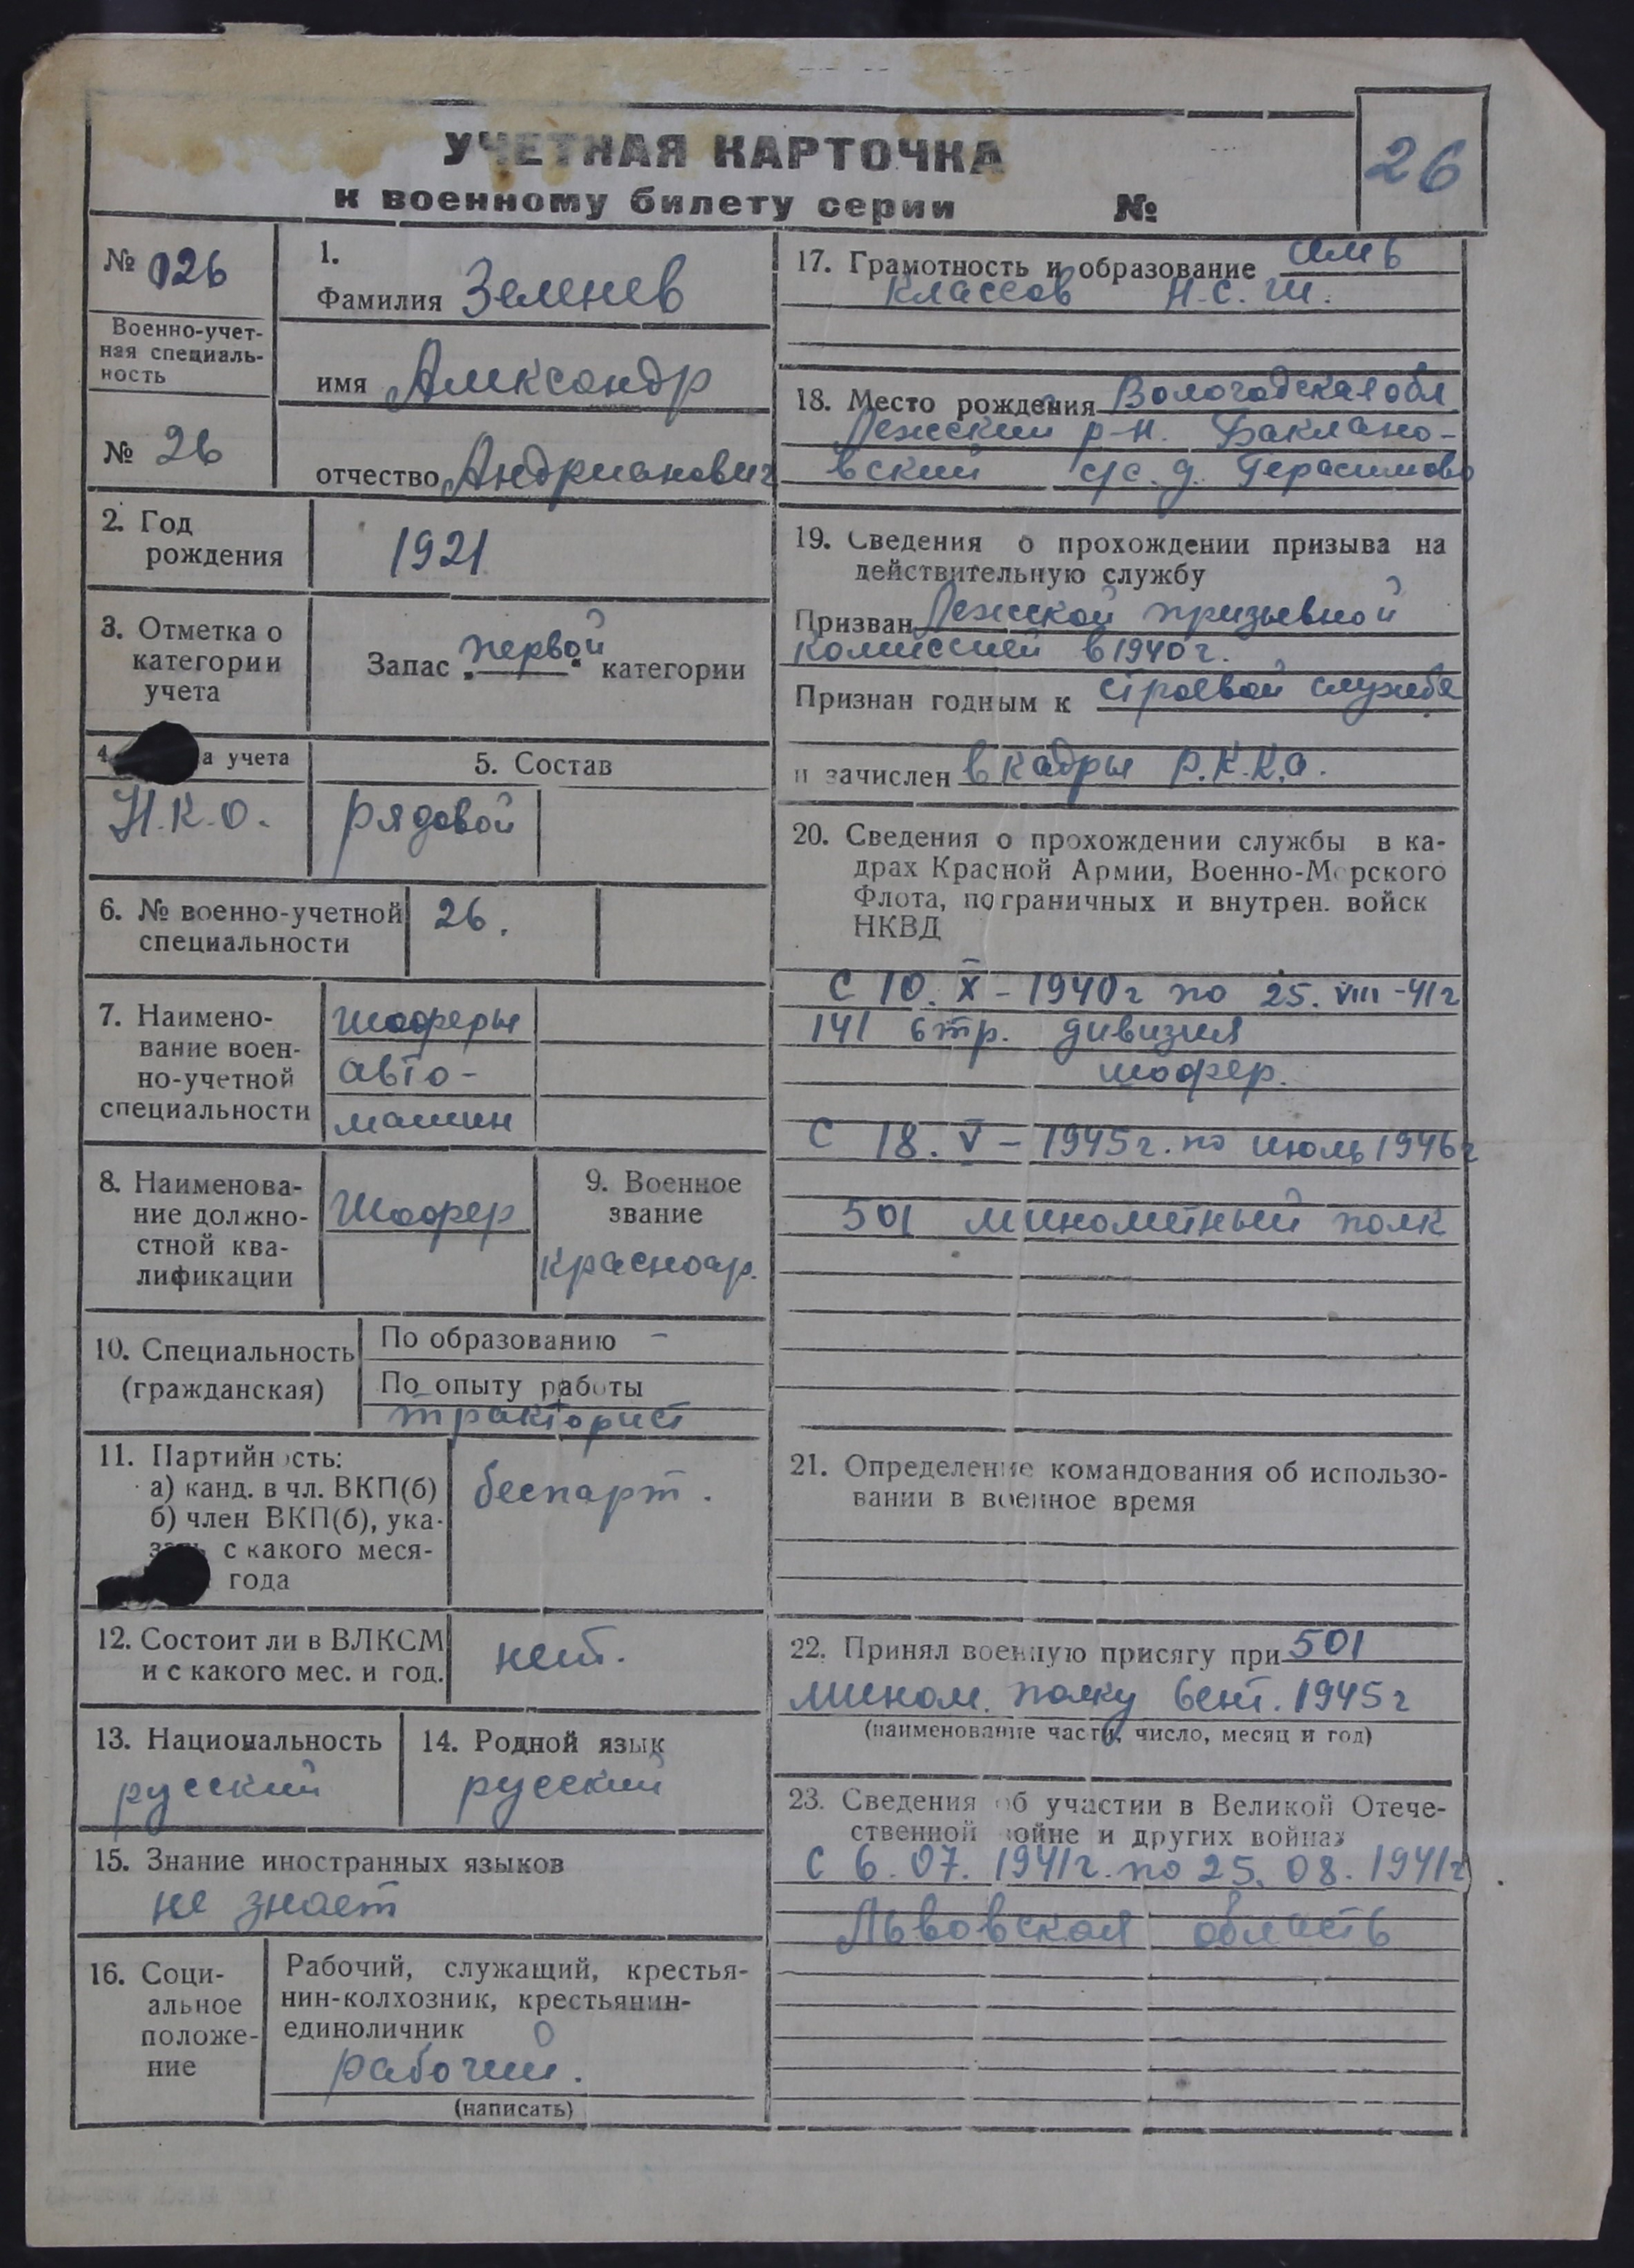 УЧЕТНАЯ КАРТОЧКА
к военному билету серии №
26
№ 026
Военно-учет-
ная специаль-
ность
№ 26
1.
Фамилия Зеленев
имя Александр
отчество Андрианович
2. Год
рождения
1921
3. Отметка о
категории
учета
Запас "первой" категории
4. а учета
Н.К.О.
5. Состав
рядовой
6. № военно-учетной
специальности
26.
7. Наимено-
вание воен-
но-учетной
специальности
шоферы
авто-
машин
8. Наименова-
ние должно-
стной ква-
лификации
Шофер
9. Военное
звание
красноар.
10. Специальность
(гражданская)
По образованию –
По опыту работы
тракторист
11. Партийность:
а) канд. в чл. ВКП(б)
б) член ВКП(б), ука-
зать с какого меся-
года
беспарт.
12. Состоит ли в ВЛКСМ
и с какого мес. и год.
нет.
13. Национальность
русский
14. Родной язык
русский
15. Знание иностранных языков
не знает
16. Соци-
альное
положе-
ние
Рабочий, служащий, крестья-
нин-колхозник, крестьянин-
единоличник
рабочий.
(написать)
17. Грамотность и образование
классов Н.С.Ш.
18. Место рождения Вологодская обл
Лежский р-н. Баклано-
вский с/с. д. Герасимово
19. Сведения о прохождении призыва на
действительную службу
Призван Лежской призывной
комиссией в 1940 г.
Признан годным к строевой службе
и зачислен в кадры Р.К.К.А.
20. Сведения о прохождении службы в ка-
драх Красной Армии, Военно-Морского
Флота, пограничных и внутрен. войск
НКВД
С 10. X – 1940 г по 25. VIII – 41 г
141 стр. дивизия
шофер.
С 18. V – 1945 г. по июль 1946 г
501 минометный полк
21. Определение командования об использо-
вании в военное время
22. Принял военную присягу при 501
мином. полку сент. 1945 г
(наименование части, число, месяц и год)
23. Сведения об участии в Великой Отече-
ственной войне и других войнах
С 6. 07. 1941 г. по 25. 08. 1941 г.
Львовская область